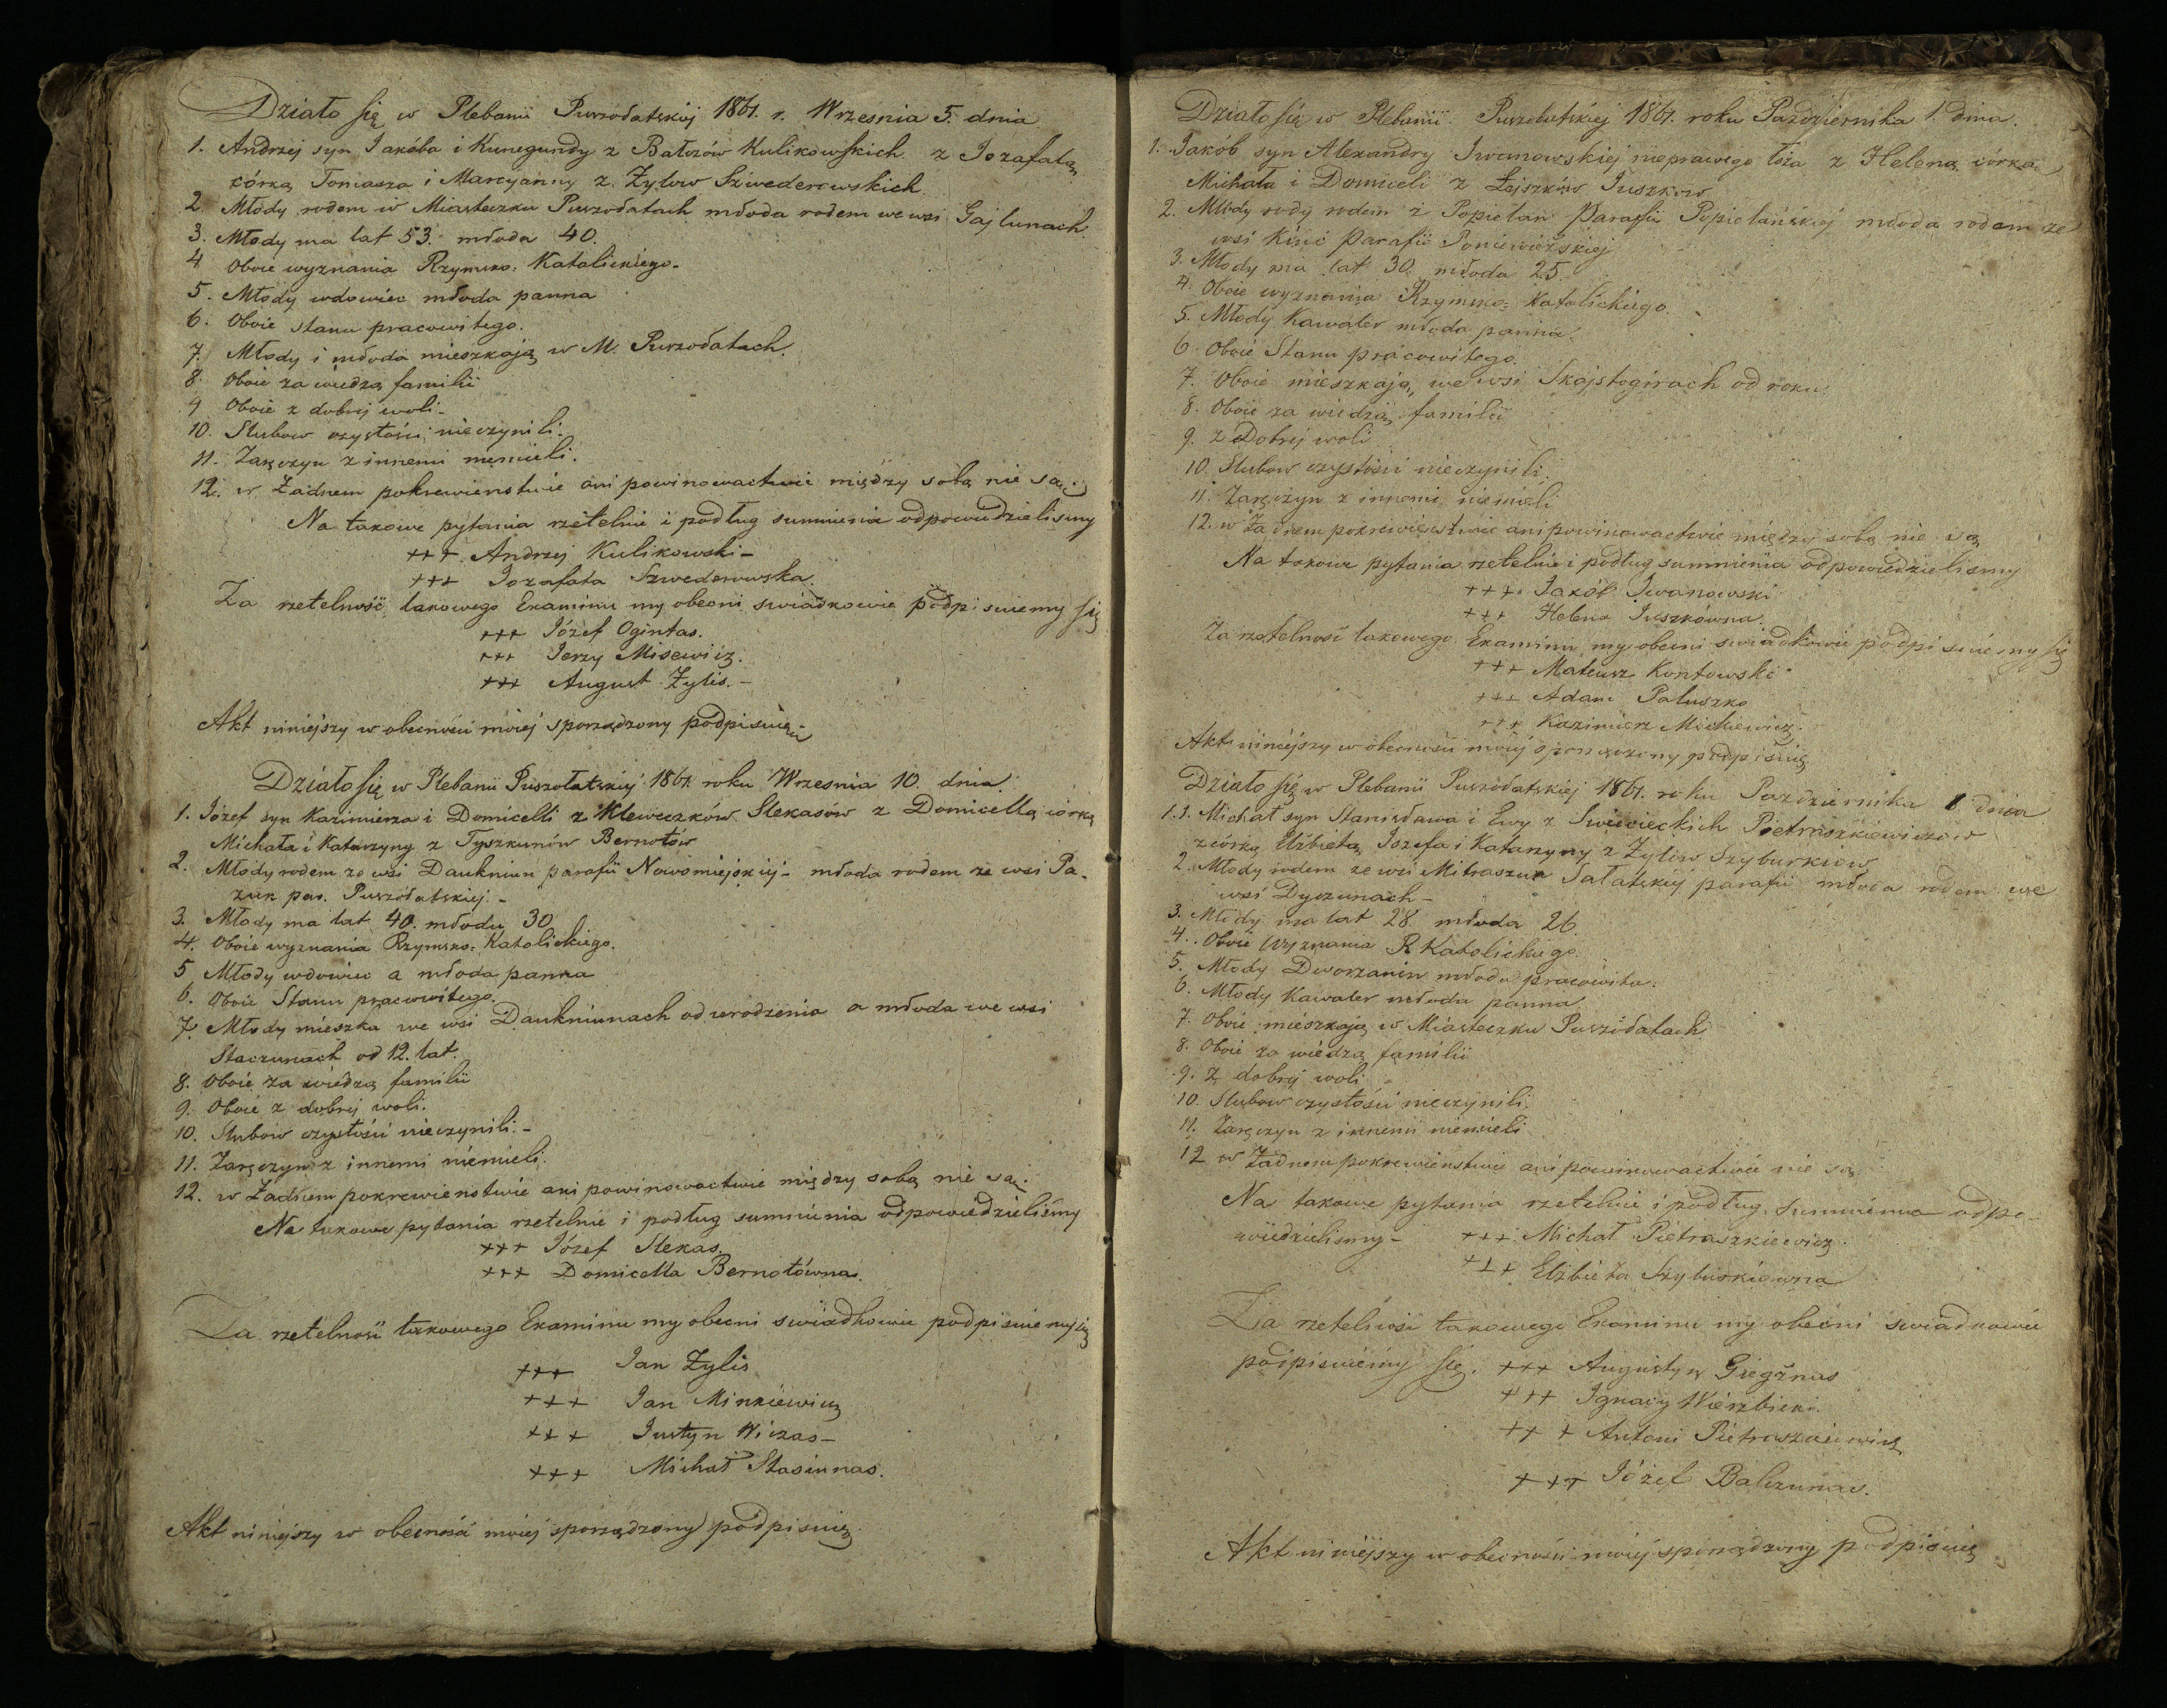 Działo się w Plebanii Puszołatskiej 1861. r. Wrzesnia 5. dnia
1. Andrzej syn Jakóba i Kunegundy z Bałzów Kulikowskich z Jozafatą
córką Tomasza i Marcyanny z Zylow Szwederowskich
2. Młody rodem w Miasteczku Puszołatach młoda rodem we wsi Gajlunach.
3. Młody ma lat 53. młoda 40.
4 Oboie wyznania Rzymsko: Katolickiego.
5. Młody wdowiec młoda panna
6. Oboie stanu pracowitego.
7. Młody i młoda mieszkają w M. Puszołatach.
8. Oboie za wiedzą familii
9 Oboie z dobrej woli.
10. Slubow czystości nieczynili.
11. Zaręczyn z innemi niemieli.
12. w Żadnem pokrewienstwie ani powinowactwie między sobą nie są.
Na takowe pytania rzetelnie i podług sumnienia odpowiedzielismy
+++ Andrzej Kulikowski
+++ Jozafata Szwederowska.
Za rzetelność takowego Examinu my obecni swiadkowie podpisuiemy się
+++ Józef Ogintas.
+++ Jerzy Misewicz.
+++ August Zylis.
Akt niniejszy w obecności mòiej sporządzony podpisuię
Działo się w Plebanii Puszołatskiej 1861. roku Wrzesnia 10. dnia.
1. Józef syn Kazimierza i Domicelli z Kleweczków Slekasów z Domicellą córką
Michała i Katarzyny z Tyszkunów Bernotów
2. Młody rodem ze wsi Daukniun parafii Nowomiejskiej - młoda rodem ze wsi Pa-
żuk par. Puszołatskiej.
3. Młody ma lat 40. młoda 30
4. Oboie wyznania Rzymsko: Katolickiego.
5 Młody wdowiec a młoda panna
6. Oboie Stanu pracowitego.
7. Młody mieszka we wsi Daukniunach od urodzenia a młoda we wsi
Staczunach od 12. lat.
8. Oboie za wiedzą familii
9. Oboie z dobrej woli.
10. Slubow czystości nieczynili.
11. Zaręczyn z innemi niemieli.
12. w Żadnem pokrewienstwie ani powinowactwie między sobą nie są.
Na takowe pytania rzetelnie i podług sumnienia odpowiedzieliśmy
+++ Józef Slekas.
+++ Domicella Bernotówna.
Za rzetelność takowego Examinu my obecni swiadkowie podpisuiemy się
+++ Jan Zylis
+++ Jan Minkiewicz
+++ Justyn Wiczas
+++ Michał Stasiunas.
Akt niniejszy w obecności mòiej sporządzony podpisuię.
Działo się w Plebanii Puszołatskiej 1861. roku Pazdziernika 1. dnia.
1. Jakób syn Alexandry Iwanowskiej nieprawego łoża z Heleną córką
Michała i Domiceli z Łejszków Juszkow
2. Młody rodem z Popielan Parafii Popielańskiej młoda rodem ze
wsi Kinć Parafii Poniewieżskiej
3. Młody ma lat 30. młoda 25.
4. Oboie wyznania Rzymsko: Katolickiego.
5. Młody Kawaler młoda panna.
6. Oboie Stanu pracowitego.
7. Oboie mieszkają we wsi Skajstogirach od roku
8. Oboie za wiedzą familii
9. z Dobrej woli
10. Slubow czystości nieczynili.
11. Zaręczyn z innemi niemieli
12. w Żadnem pokrewieństwie ani powinowactwie między sobą nie są
Na takowe pytania rzetelnie i podług sumnienia odpowiedzielismy
+++ Jakób Iwanowski
+++ Helena Juszkówna.
Za rzetelność takowego Examinu my obecni swiadkowie podpisuiemy się
+++ Mateusz Kontowski
+++ Adam Paluszko
+++ Kazimierz Mickiewicz.
Akt niniejszy w obecności mòiej sporządzony podpisuię
Działo się w Plebanii Puszołatskiej 1861. roku Pazdziernika 8 dnia
1. Michał syn Stanisława i Ewy z Swiecieckich Pietraszkiewiczow
z córką Elżbietą Jozefa i Katarzyny z Zylow Szyburkiow
2. Młody rodem ze wsi Mitraszun Sałatskiej parafii młoda rodem we
wsi Dyczunach
3. Młody ma lat 28. młoda 26.
4. Oboie wyznania R. Katolickiego
5. Młody Dworzanin młoda pracowita.
6. Młody Kawaler młoda panna
7. Oboie mieszkają w Miasteczku Puszołatach
8. Oboie za wiedzą familii
9. Z dobrej woli
10. Slubow czystości nieczynili.
11. Zaręczyn z innemi niemieli
12 w Żadnem pokrewienstwie ani powinowactwie nie są
Na takowe pytania rzetelnie i podług sumnienia odpo-
wiedzielismy - +++ Michał Pietraszkiewicz.
+++ Elżbieta Szyburkiowna
Za rzetelność takowego Examinu my obecni swiadkowie
podpisuiemy się. +++ Augustyn Giegżnas
+++ Ignacy Wierzbicki.
+++ Antoni Pietraszkiewicz
+++ Józef Balczunas.
Akt niniejszy w obecności mòiej sporządzony podpisuię